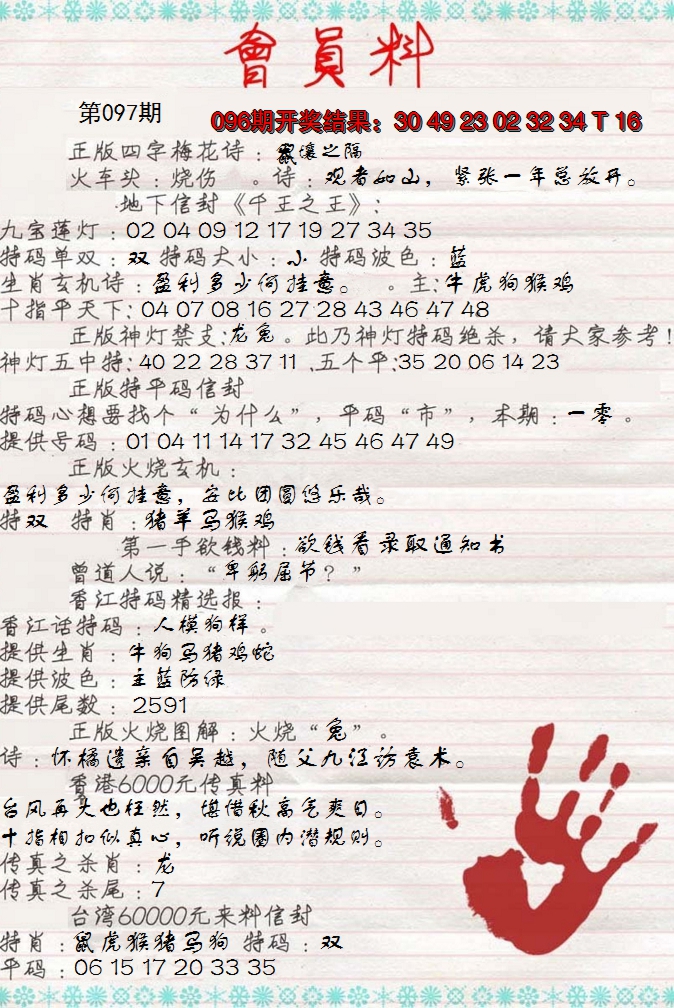 會員料
第097期
096期开奖结果：30 49 23 02 32 34 T 16
正版四字梅花诗：鼠壤之隔
火车头：烧伤 。诗：观者如山，紧张一年总放开。
地下信封《千王之王》：
九宝莲灯：02 04 09 12 17 19 27 34 35
特码单双：双 特码大小：小 特码波色：蓝
生肖玄机诗：盈利多少何挂意。 。主：牛虎狗猴鸡
十指平天下：04 07 08 16 27 28 43 46 47 48
正版神灯禁支：龙兔。此乃神灯特码绝杀，请大家参考！
神灯五中特：40 22 28 37 11 .五个平：35 20 06 14 23
正版特平码信封
特码心想要找个“为什么”，平码“市”，本期：一零。
提供号码：01 04 11 14 17 32 45 46 47 49
正版火烧玄机：
盈利多少何挂意，安比团圆悠乐哉。
特双 特肖：猪羊马猴鸡
第一手欲钱料：欲钱看录取通知书
曾道人说：“卑躬屈节？”
香江特码精选报：
香江话特码：人模狗样。
提供生肖：牛狗马猪鸡蛇
提供波色：主蓝防绿
提供尾数：2591
正版火烧图解：火烧“兔”。
诗：怀橘遗亲自吴越，随父九江访袁术。
香港6000元传真料
台风再大也枉然，堪借秋高气爽日。
十指相扣似真心，听说圈内潜规则。
传真之杀肖：龙
传真之杀尾：7
台湾60000元来料信封
特肖：鼠虎猴猪马狗 特码：双
平码：06 15 17 20 33 35